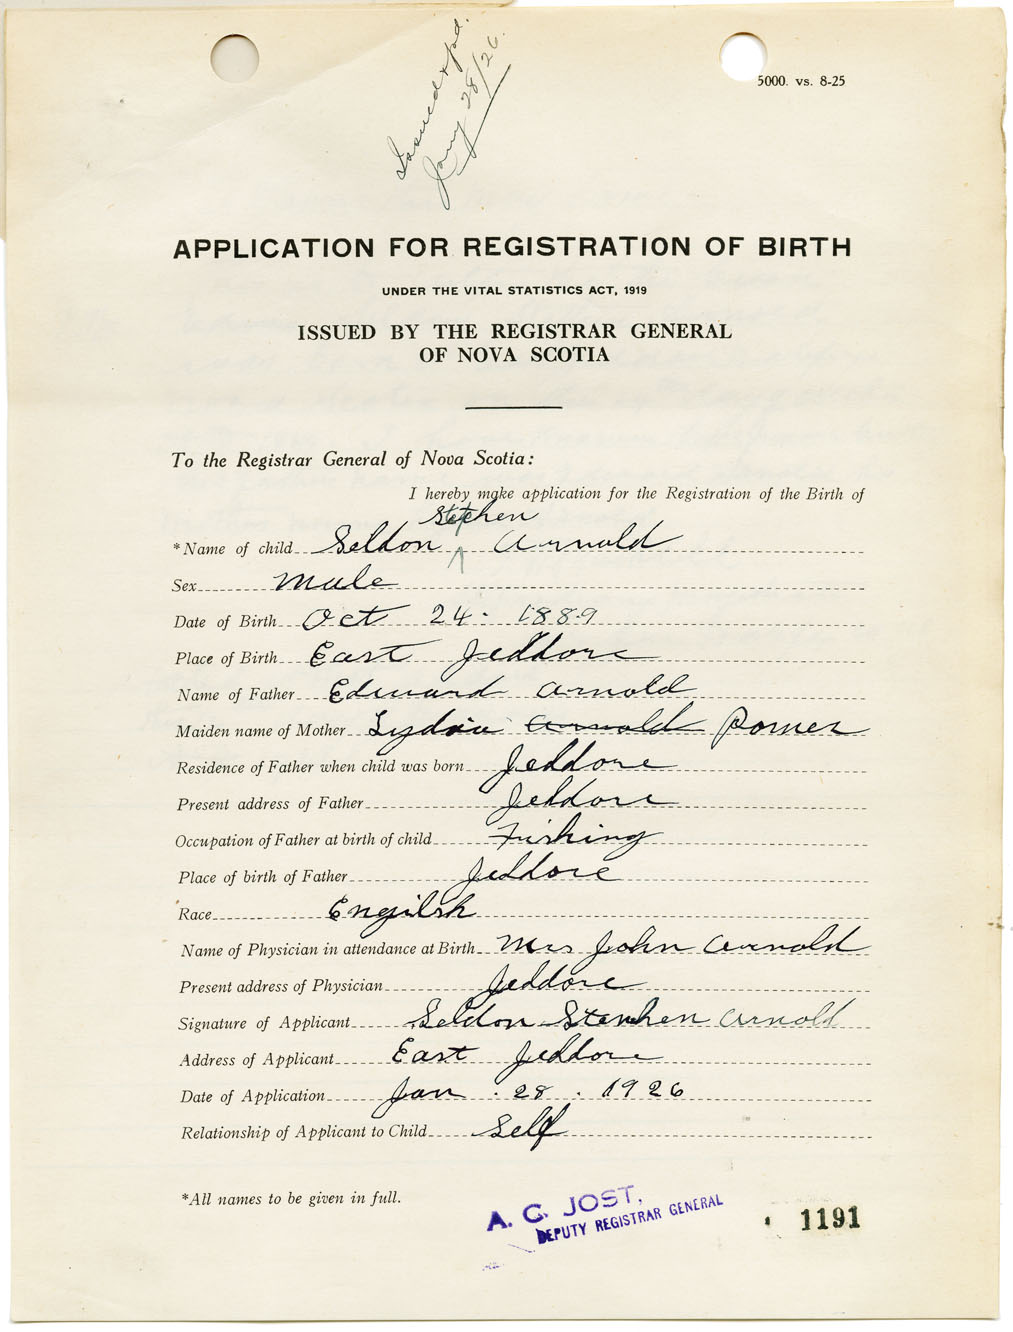 Issued & pd.
Jany 28/26.
5000. vs. 8-25
APPLICATION FOR REGISTRATION OF BIRTH
UNDER THE VITAL STATISTICS ACT, 1919
ISSUED BY THE REGISTRAR GENERAL
OF NOVA SCOTIA
To the Registrar General of Nova Scotia:
I hereby make application for the Registration of the Birth of
Stephen
*Name of child Seldon ^ Arnold
Sex Male
Date of Birth Oct 24 - 1889
Place of Birth East Jeddore
Name of Father Edward Arnold
Maiden name of Mother Lydia Arnold Romer
Residence of Father when child was born Jeddore
Present address of Father Jeddore
Occupation of Father at birth of child Fishing
Place of birth of Father Jeddore
Race Engilsh
Name of Physician in attendance at Birth Mrs John Arnold
Present address of Physician Jeddore
Signature of Applicant Seldon Stephen Arnold
Address of Applicant East Jeddore
Date of Application Jan . 28 . 1926
Relationship of Applicant to Child Self
*All names to be given in full.
A. C. JOST,
DEPUTY REGISTRAR GENERAL
1191